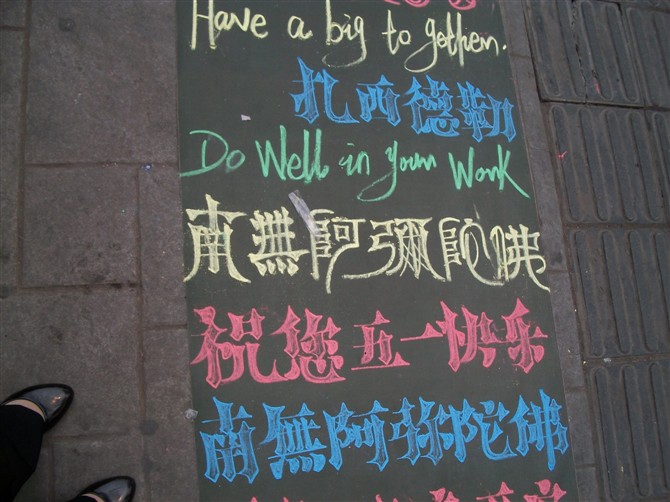 Have a big to gethen.
扎西德勒
Do Well in youn Wonk
南無阿彌陀佛
祝您五一快乐
南無阿弥陀佛